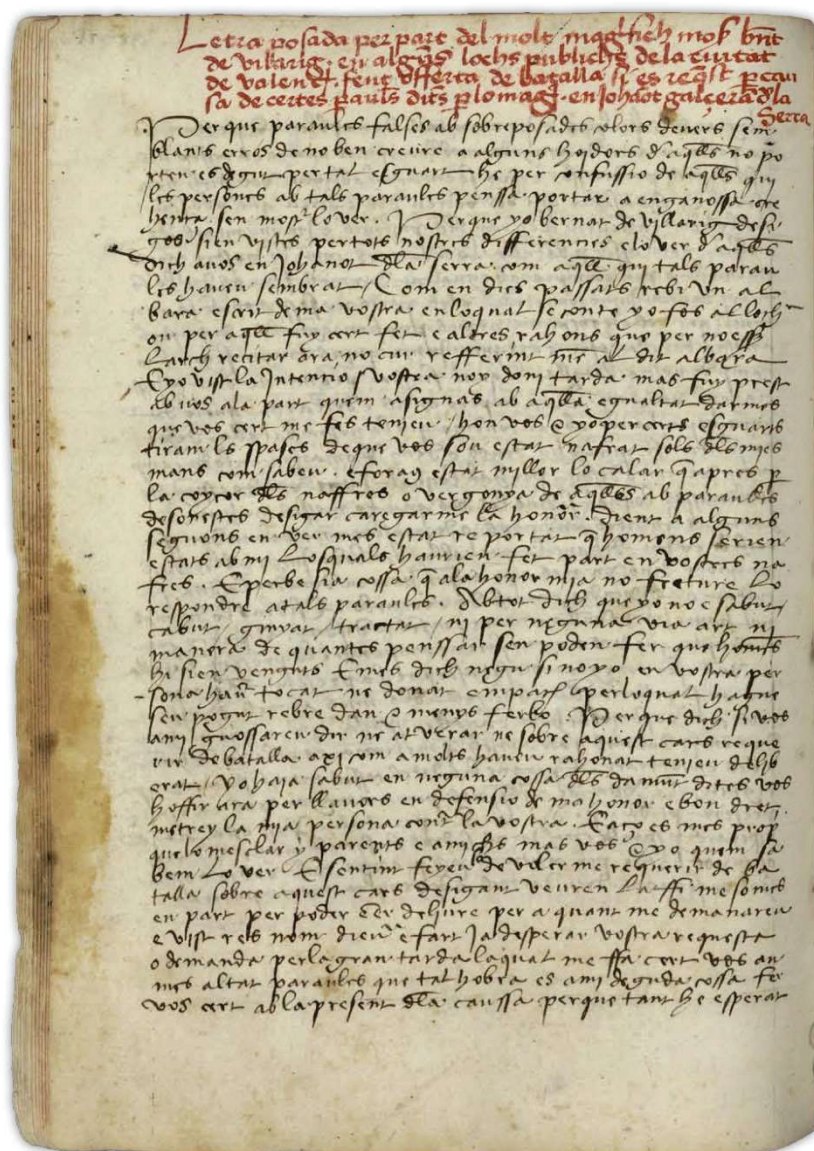 Letra posada per part del molt magfich moss bnt
de vilarig. en algūs lochs publichs de la ciutat
de valencͣ. fent offerta de batalla si es reqst per cau
sa de certes paraules dites per lo magͨ. en Johāot galcerā dela
Serra
Per que paraules falses ab sobreposades colors de vers sem
blants erros de no ben creure a alguns hoidors d aqlls no po
rten es degut per tal esguart he per confussio de aqlls qui
les persones ab tals paraules penssa portar a enganossa cre
hença sen mostͬ lo ver. Perque yo bernat de villarig desi
gos sien vistes per tots nostres differencies e lo ver d aqlls
dich a vos en Johanot dla serra com aqll qui tals parau
les haveu sembrat / Com en dies passats rebi un al
bara escrit de ma vostra en lo qual se conte yo fos al loch
on per aqll fuy cert fet e altres rahons que per no esser
larch recitar ara no cur refferint me al dit albara
E yo vist la Intencio vostra noy doni tarda mas fuy prest
ab vos ala part quem asignas ab aqlla egualtat darmes
que vos cert me fes tenieu / hon vos & yo per certs esguarts
tiram ls spases de que vos sou estat nafrat sols dls mies
mans com sabeu. e forau estat millor lo calar q apres p
la coyçor dls naffres o vergonya de aqlls ab paraules
desonestes desigar caregarme la honor. dient a alguns
segons en ver mes estat reportat q homens serien
estats ab mi los quals haurien fet part en vostres na
fres. E per be sia cossa q ala honor mia no freture lo
respondre a tals paraules. Ab tot dich que yo no e sabut /
cabut / ginyat / tractat / ni per neguna via art ni
manera de quantes penssar sen poden fer que homēs
hi sien venguts E mes dich negu si no yo en vostra per
sona haͬ tocat ne donat empaig per lo qual hague
seu pogut rebre dan o menys ferbo. Perque dich si vos
a mi guossareu dir ne atverar ne sobre aquest cars reque
rir de batalla axi com a molts haveu rahonat tenieu delib
erat / yo haia sabut en neguna cossa dls damūt dites vos
hoffir ara per llavors en defensio de ma honor e bon dret
metrey la mia persona contͣ la vostra. E aço es mes propi
que no mesclar y parents e amichs mas vos & yo quem sa
bem lo ver E sentint feyeu de voler me requerir de ba
talla sobre aquest cars desigant veuren la ffi me somes
en part per poder esser deliure per a quant me demanareu
e vist res nom dieu e fart Ja desperar vostra requesta
o demanda per la gran tarda la qual me ffa cert vos an
mes altat paraules que tal hobra es a mi deguda cossa fer
vos cert ab la present dla caussa perque tant he esperat